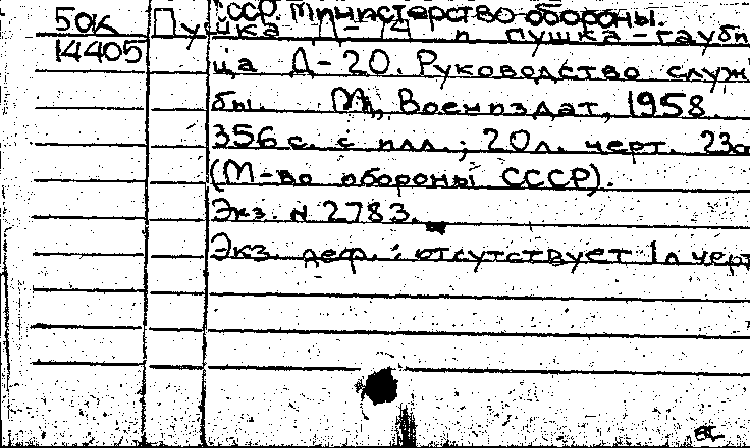 50К
14405
СССР. Министерство обороны.
Пушка Д-74 и пушка-гауби
ца Д-20. Руководство служ
бы. М., Воениздат, 1958.
356 с. с илл.; 20 л. черт. 23с
(М-во обороны СССР).
Экз. N 2783.
Экз. деф.: отсутствует 1 л черт